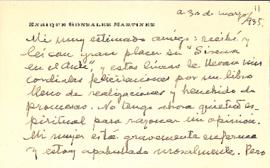 a 30 de marzo/
935.
11
ENRIQUE GONZALEZ MARTINEZ
Mi muy estimado amigo: recibí y
leí con gran placer su "Sirena
en el Aula", y estas líneas le llevan mis
cordiales felicitaciones por un libro
lleno de realizaciones y henchido de
promesas. No tengo ahora quietud es-
piritual para razonar mi opinión.
Mi mujer está gravemente enferma
y estoy apabullado moralmente. Pero